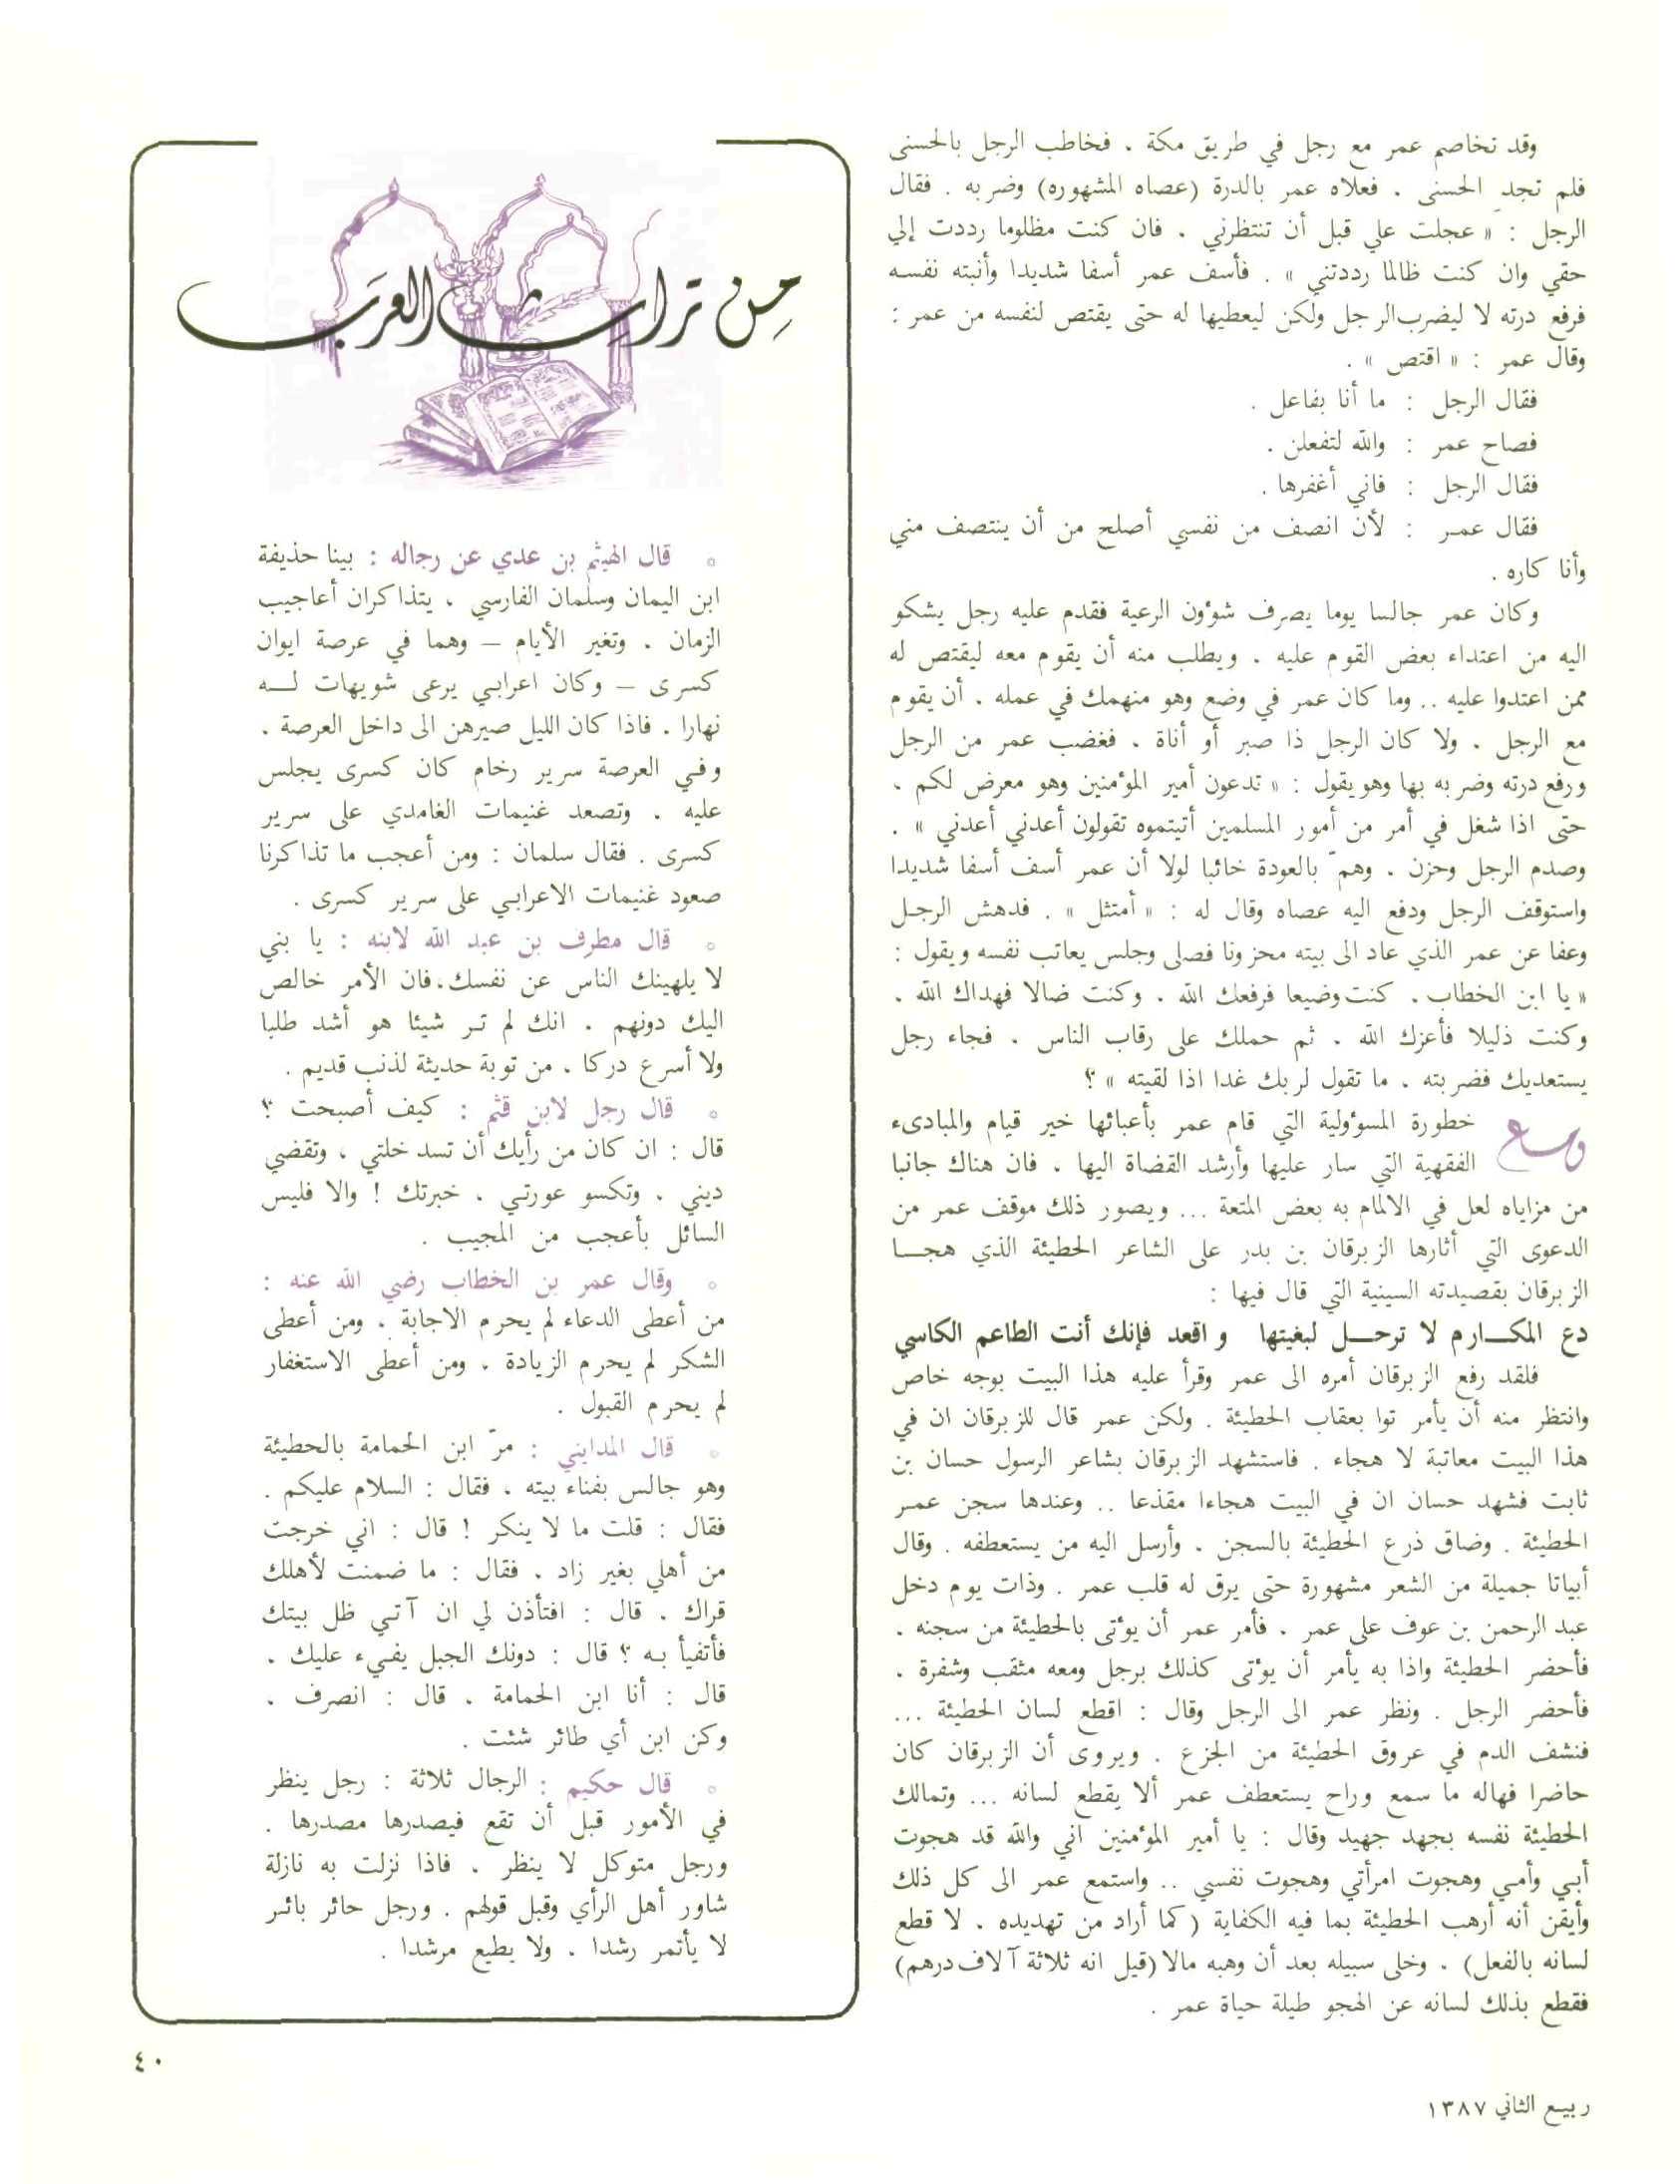 وقد تخاصم عمر مع رجل في طريق مكة . فخاطب الرجل بالحسنى
فلم تجد الحسنى . فعلاه عمر بالدرة (عصاه المشهوره) وضربه . فقال
الرجل : « عجلت علي قبل أن تنتظرني . فان كنت مظلوما رددت إلي
حقي وان كنت ظالما رددتني » . فأسف عمر أسفا شديدا وأنبته نفسه
فرفع درته لا ليضرب الرجل ولكن ليعطيها له حتى يقتص لنفسه من عمر :
وقال عمر : « اقتص » .
فقال الرجل : ما أنا بفاعل .
فصاح عمر : والله لتفعلن .
فقال الرجل : فاني أغفرها .
فقال عمر : لأن انصف من نفسي أصلح من أن ينتصف مني
وأنا كاره .
وكان عمر جالسا يوما يصرف شؤون الرعية فقدم عليه رجل يشكو
اليه من اعتداء بعض القوم عليه . ويطلب منه أن يقوم معه ليقتص له
ممن اعتدوا عليه .. وما كان عمر في وضع وهو منهمك في عمله . أن يقوم
مع الرجل . ولا كان الرجل ذا صبر أو أناة . فغضب عمر من الرجل
ورفع درته وضربه بها وهو يقول : « تدعون أمير المؤمنين وهو معرض لكم .
حتى اذا شغل في أمر من أمور المسلمين أتيتموه تقولون أعدني أعدني » .
وصدم الرجل وحزن . وهمّ بالعودة خائبا لولا أن عمر أسف أسفا شديدا
واستوقف الرجل ودفع اليه عصاه وقال له : « أمتثل » . فدهش الرجل
وعفا عن عمر الذي عاد الى بيته محزونا فصلى وجلس يعاتب نفسه ويقول :
« يا ابن الخطاب . كنت وضيعا فرفعك الله . وكنت ضالا فهداك الله .
وكنت ذليلا فأعزك الله . ثم حملك على رقاب الناس . فجاء رجل
يستعديك فضربته . ما تقول لربك غدا اذا لقيته » ؟
ومع خطورة المسؤولية التي قام عمر بأعبائها خير قيام والمبادىء
الفقهية التي سار عليها وأرشد القضاة اليها . فان هناك جانبا
من مزاياه لعل في الالمام به بعض المتعة ... ويصور ذلك موقف عمر من
الدعوى التي أثارها الزبرقان بن بدر على الشاعر الحطيئة الذي هجا
الزبرقان بقصيدته السينية التي قال فيها :
دع المكارم لا ترحل لبغيتها واقعد فإنك أنت الطاعم الكاسي
فلقد رفع الزبرقان أمره الى عمر وقرأ عليه هذا البيت بوجه خاص
وانتظر منه أن يأمر توا بعقاب الحطيئة . ولكن عمر قال للزبرقان ان في
هذا البيت معاتبة لا هجاء . فاستشهد الزبرقان بشاعر الرسول حسان بن
ثابت فشهد حسان ان في البيت هجاءا مقذعا .. وعندها سجن عمر
الحطيئة . وضاق ذرع الحطيئة بالسجن . وأرسل اليه من يستعطفه . وقال
أبياتا جميلة من الشعر مشهورة حتى يرق له قلب عمر . وذات يوم دخل
عبد الرحمن بن عوف على عمر . فأمر عمر أن يؤتى بالحطيئة من سجنه .
فأحضر الحطيئة واذا به يأمر أن يؤتى كذلك برجل ومعه مثقب وشفرة .
فأحضر الرجل . ونظر عمر الى الرجل وقال : اقطع لسان الحطيئة ...
فنشف الدم في عروق الحطيئة من الجزع . ويروى أن الزبرقان كان
حاضرا فهاله ما سمع وراح يستعطف عمر ألا يقطع لسانه ... وتمالك
الحطيئة نفسه بجهد جهيد وقال : يا أمير المؤمنين اني والله قد هجوت
أبي وأمي وهجوت امرأتي وهجوت نفسي .. واستمع عمر الى كل ذلك
وأيقن أنه أرهب الحطيئة بما فيه الكفاية (كما أراد من تهديده . لا قطع
لسانه بالفعل) . وخلى سبيله بعد أن وهبه مالا (قيل انه ثلاثة آلاف درهم)
فقطع بذلك لسانه عن الهجو طيلة حياة عمر .
من تراث العرب
° قال الهيثم بن عدي عن رجاله : بينا حذيفة
ابن اليمان وسلمان الفارسي . يتذاكران أعاجيب
الزمان . وتغير الأيام – وهما في عرصة ايوان
كسرى – وكان اعرابي يرعى شويهات له
نهارا . فاذا كان الليل صيرهن الى داخل العرصة .
وفي العرصة سرير رخام كان كسرى يجلس
عليه . وتصعد غنيمات الغامدي على سرير
كسرى . فقال سلمان : ومن أعجب ما تذاكرنا
صعود غنيمات الاعرابي على سرير كسرى .
° قال مطرف بن عبد الله لابنه : يا بني
لا يلهينك الناس عن نفسك . فان الأمر خالص
اليك دونهم . انك لم تر شيئا هو أشد طلبا
ولا أسرع دركا . من توبة حديثة لذنب قديم .
° قال رجل لابن قثم : كيف أصبحت ؟
قال : ان كان من رأيك أن تسد خلتي ، وتقضي
ديني . وتكسو عورتي . خبرتك ! والا فليس
السائل بأعجب من المجيب .
° وقال عمر بن الخطاب رضي الله عنه :
من أعطى الدعاء لم يحرم الاجابة . ومن أعطى
الشكر لم يحرم الزيادة . ومن أعطى الاستغفار
لم يحرم القبول .
° قال المدايني : مرّ ابن الحمامة بالحطيئة
وهو جالس بفناء بيته . فقال : السلام عليكم .
فقال : قلت ما لا ينكر ! قال : اني خرجت
من أهلي بغير زاد . فقال : ما ضمنت لأهلك
قراك . قال : افتأذن لي ان آتي ظل بيتك
فأتفيأ به ؟ قال : دونك الجبل يفيء عليك .
قال : أنا ابن الحمامة . قال : انصرف .
وكن ابن أي طائر شئت .
° قال حكيم : الرجال ثلاثة : رجل ينظر
في الأمور قبل أن تقع فيصدرها مصدرها .
ورجل متوكل لا ينظر . فاذا نزلت به نازلة
شاور أهل الرأي وقبل قولهم . ورجل حائر بائر
لا يأتمر رشدا . ولا يطيع مرشدا .
٤٠
ربيع الثاني ١٣٨٧